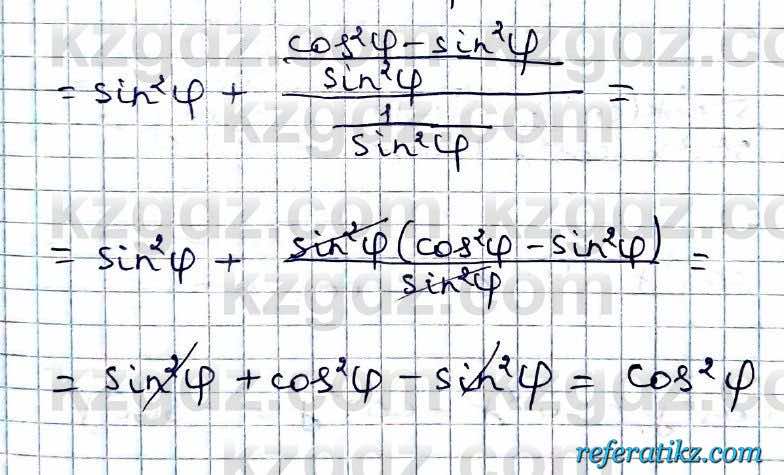 = sin²φ + \frac{\frac{cos²φ - sin²φ}{sin²φ}}{\frac{1}{sin²φ}} =
= sin²φ + \frac{sin²φ (cos²φ - sin²φ)}{sin²φ} =
= sin²φ + cos²φ - sin²φ = cos²φ
kzgdz.com
referatikz.com